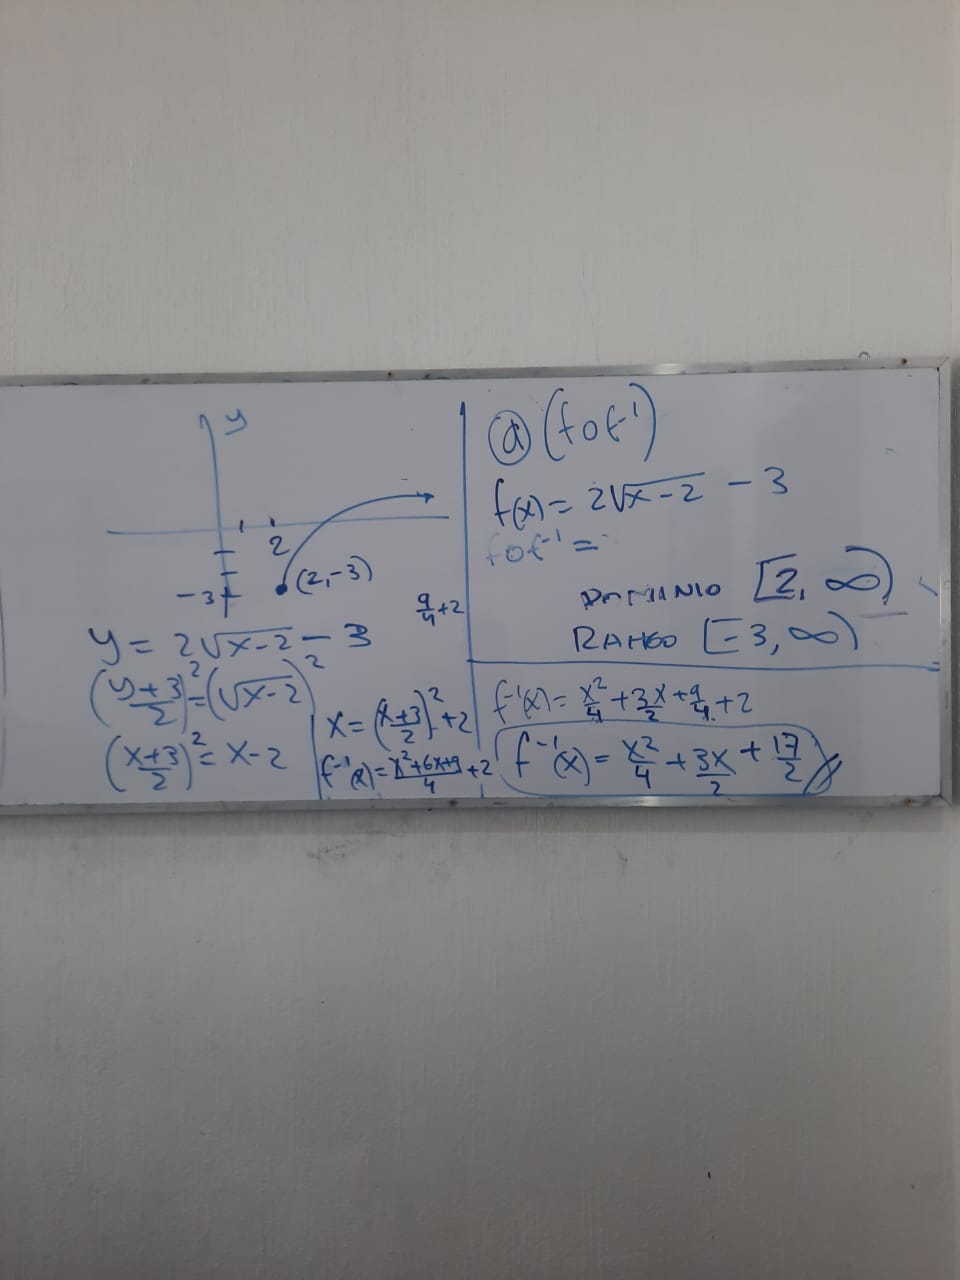 y
2
(2,-3)
-3
9/4+2
y = 2√x-2 - 3
(y+3/2)² = (√x-2)²
(x+3/2)² = x-2
x = (x+3/2)² + 2
f⁻¹(x) = x²+6x+9/4 + 2
a (f o f⁻¹)
f(x) = 2√x-2 - 3
f o f⁻¹ =
DOMINIO [2, ∞)
RANGO [-3, ∞)
f⁻¹(x) = x²/4 + 3x/2 + 9/4 + 2
f⁻¹(x) = x²/4 + 3x/2 + 17/2